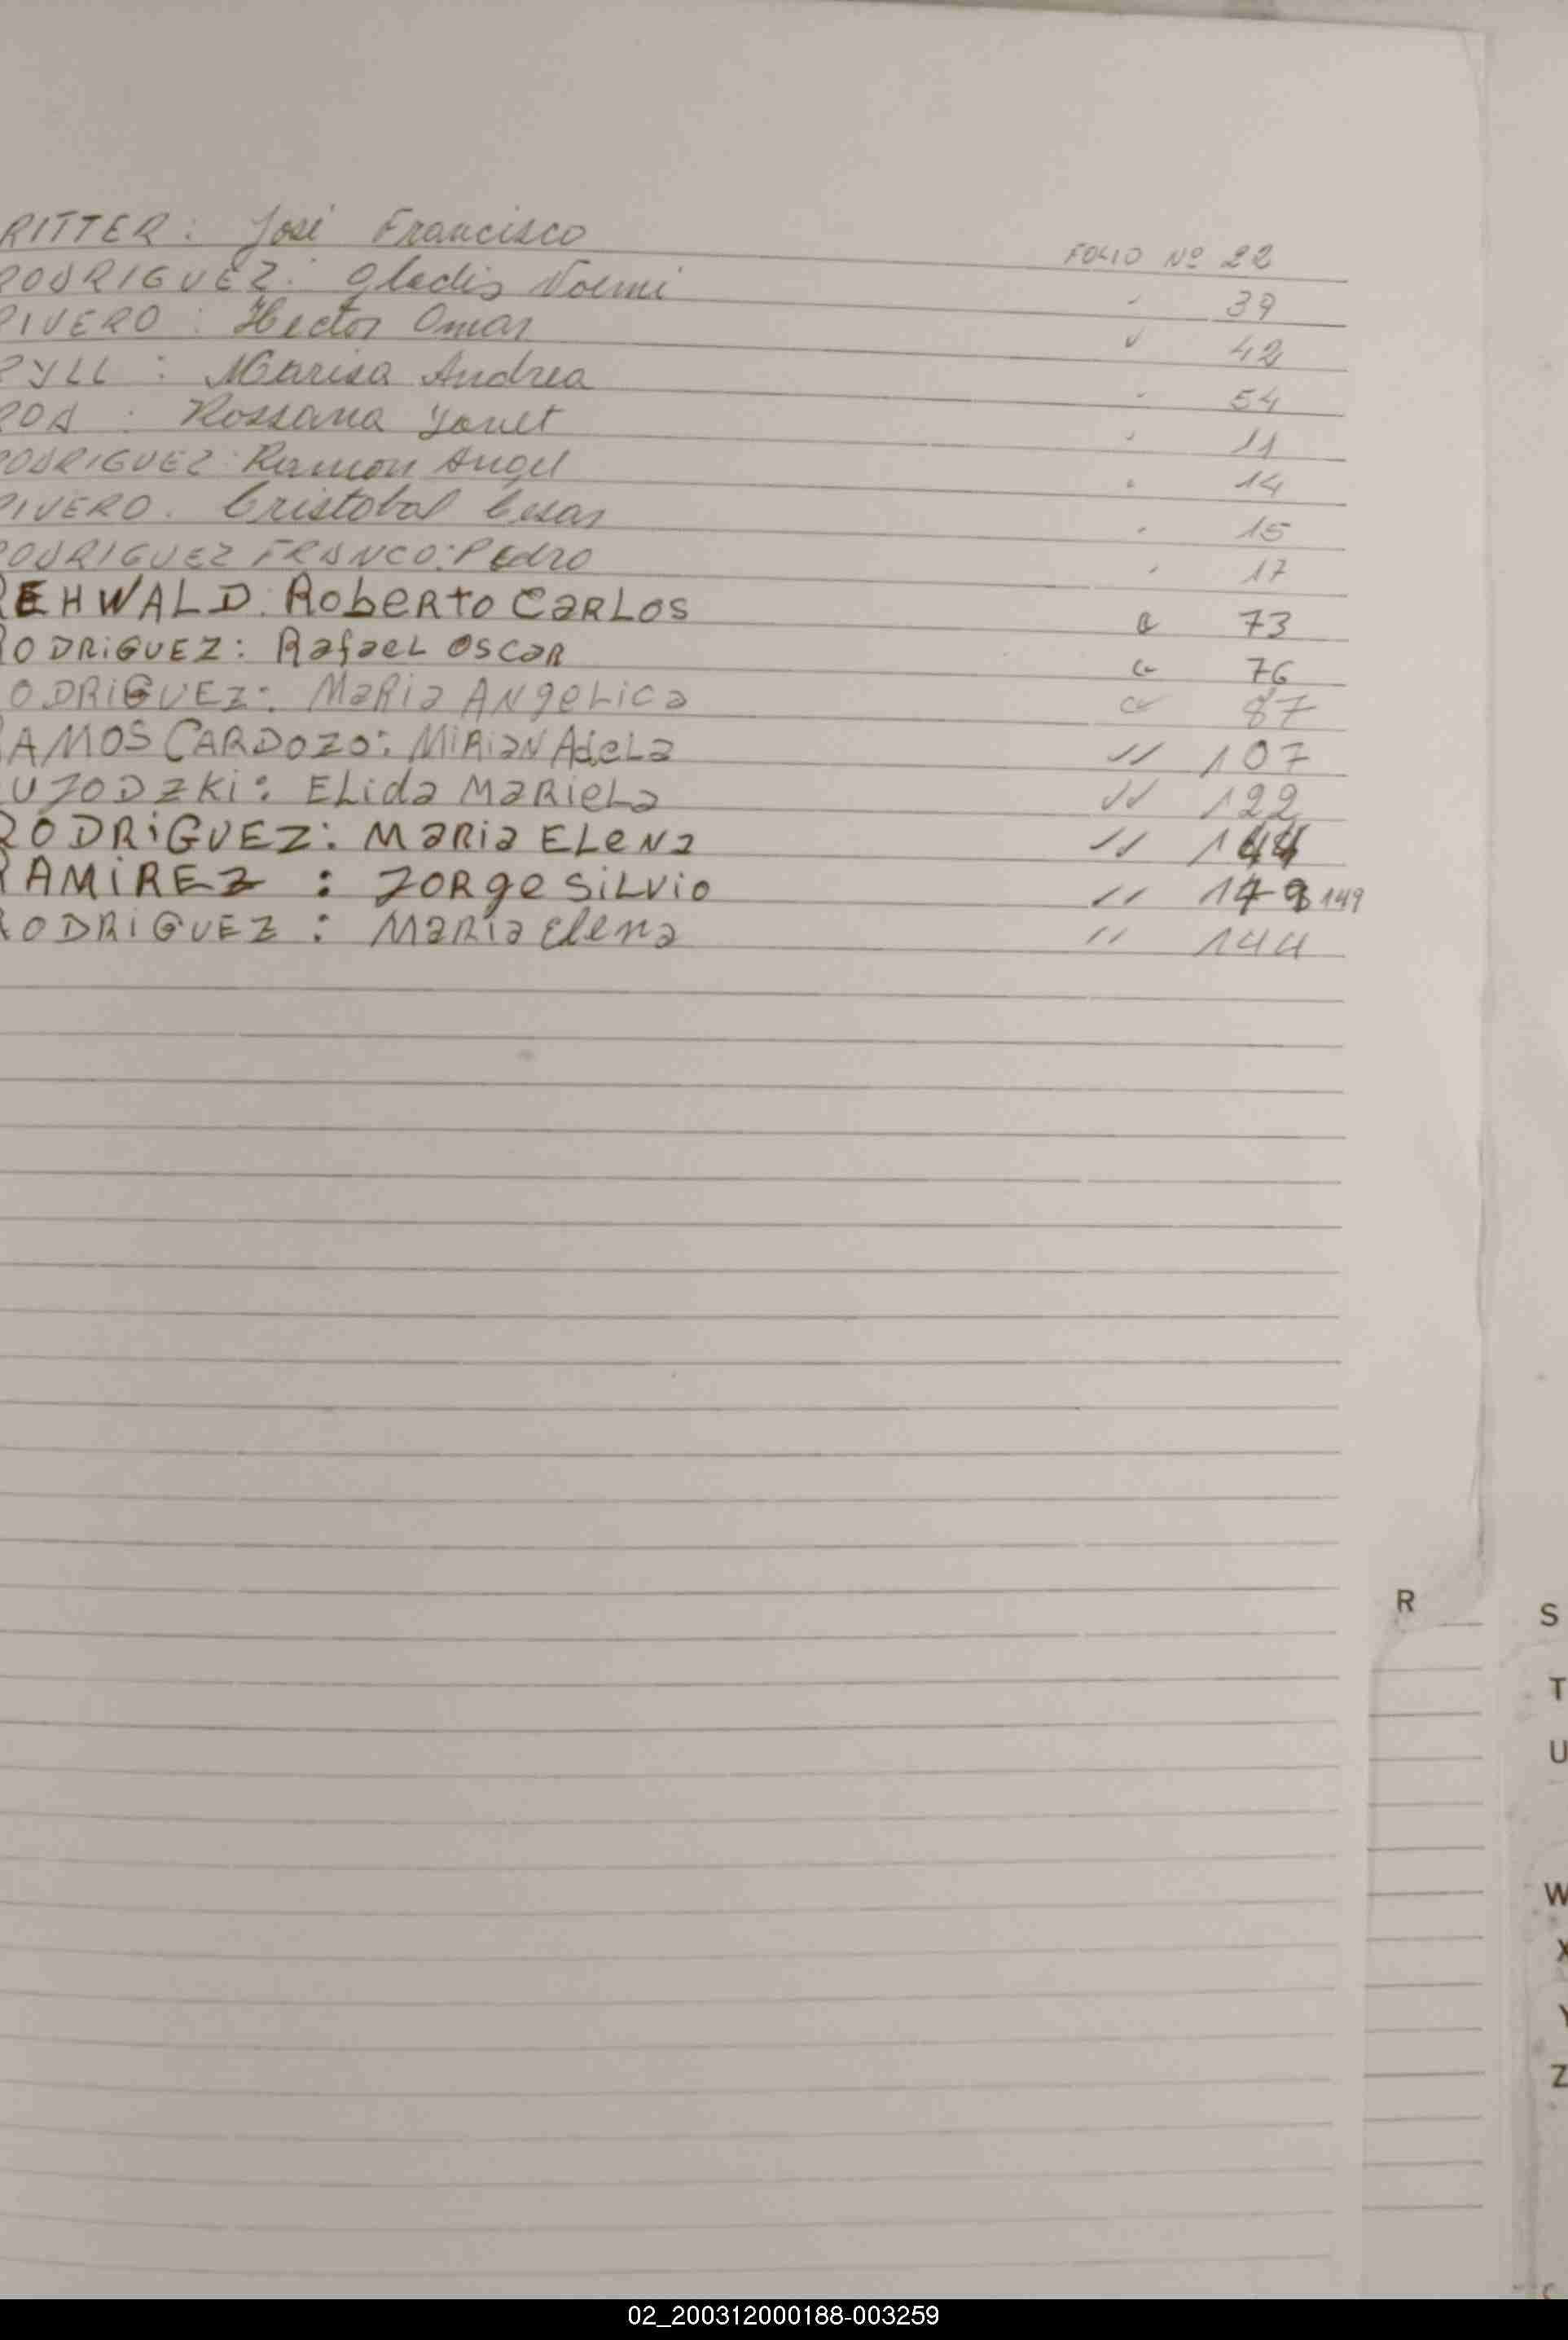 RITTER: José Francisco FOLIO Nº 22
RODRIGUEZ: Gladis Noemi " 39
RIVERO: Hector Omar " 42
RYLL: Marisa Andrea " 54
ROA: Rossana Yanet " 11
RODRIGUEZ: Ramon Angel " 14
RIVERO. Cristobal Cesar " 15
RODRIGUEZ FRANCO: Pedro " 17
REHWALD: Roberto CarLos " 73
RODRiGUEZ: RafaeL OSCaR " 76
RODRiGUEZ: MaRia ANgeLica " 87
RAMOS CARDOZO: MiRiaN AdeLa " 107
RUJODZKi: ELida MaRieLa " 122
RODRiGUEZ: MaRia ELeNa " 144
RAMiREZ: JORge SiLVio " 149
RODRiGUEZ: MaRía Elena " 144
R
S
T
U
W
X
Y
Z
02_200312000188-003259